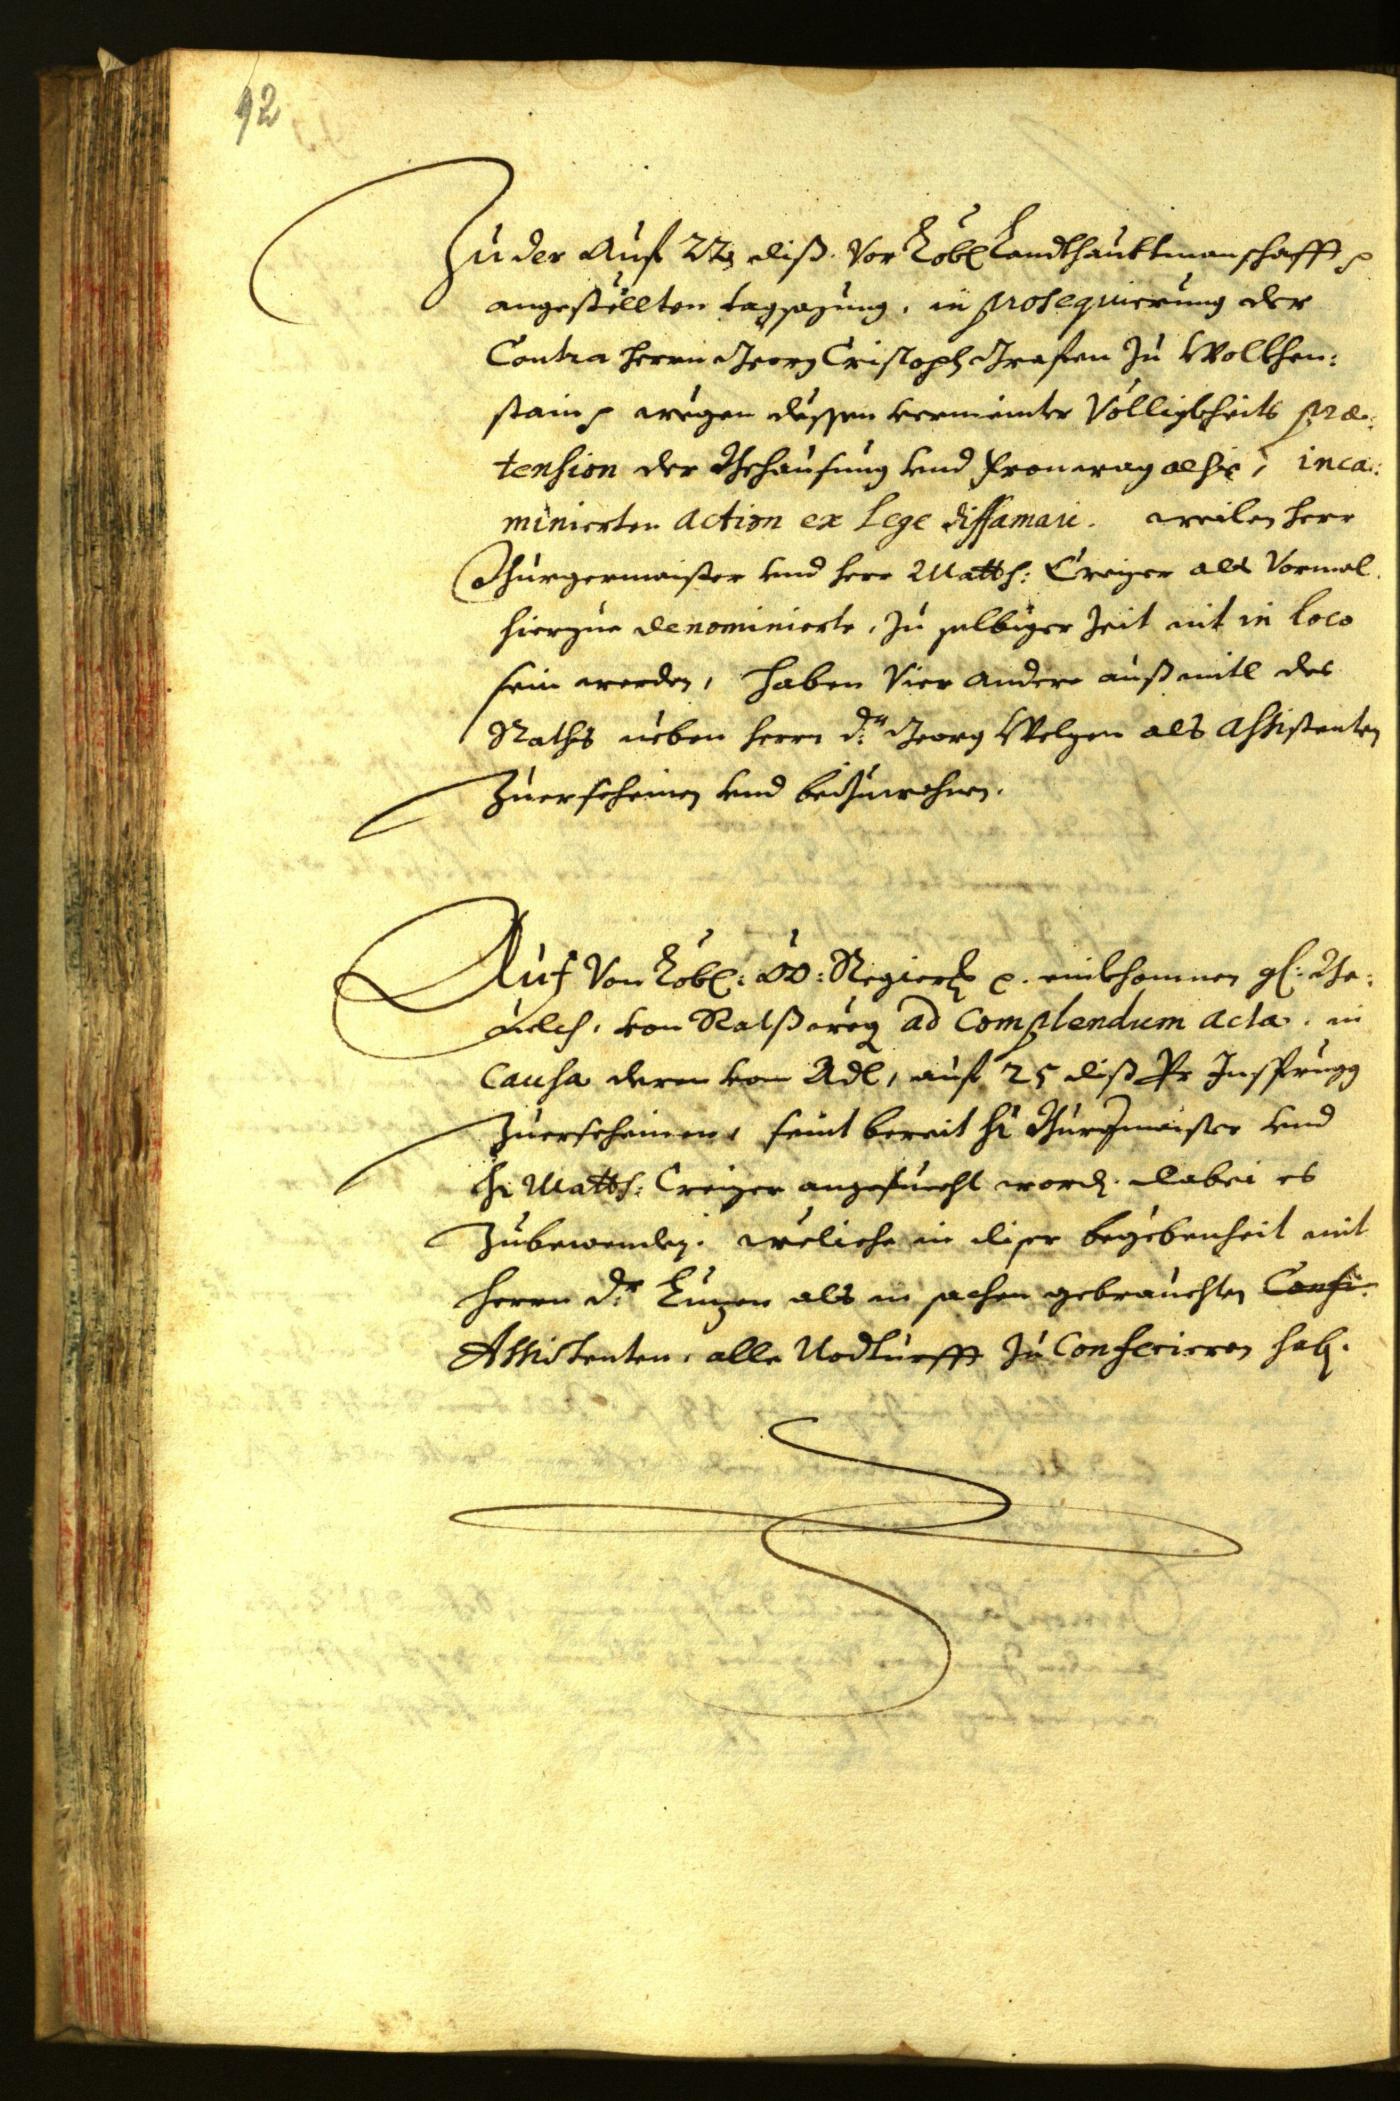 92
Zu der Auf 22 diß vor Löbl Landtshaubtmanschafft p
angestellten tagsazung, in prosequierung der
Contra herrn Georg Cristoph Grafen zu Wolkhen:
stain p wegen dessen vermeinter Völligkheits præ:
tension der Behausung vnd Fronwag alhie, inca:
minierten Action ex Lege diffamari. weilen herr
Burgermaister vnd herr Matth: Creizer als vormal
hierzue denominierte, zu selbiger Zeit nit in loco
sein werden, haben Vier andere auß mitl des
Raths neben herrn dr Georg Welzen als Assistenten
zuerscheinen vnd beizuwohnen.
Auf Von Löbl: OÖ: Regierg p. einkhomnen gl: Be:
uelch, von Ratß weg ad complendum acta. in
Causa deren vom Adl, auf 25 diß Pr Insprugg
zuerscheinen, seint bereit hr Burgmaister vnd
hr Matth: Creizer angesuecht word. dabei es
zubewenden. weliche in diser begebenheit mit
herrn dr Luzen als in sachen gebrauchten Confi:
Assistenten, alle Nodturfft zu Conferieren hab.